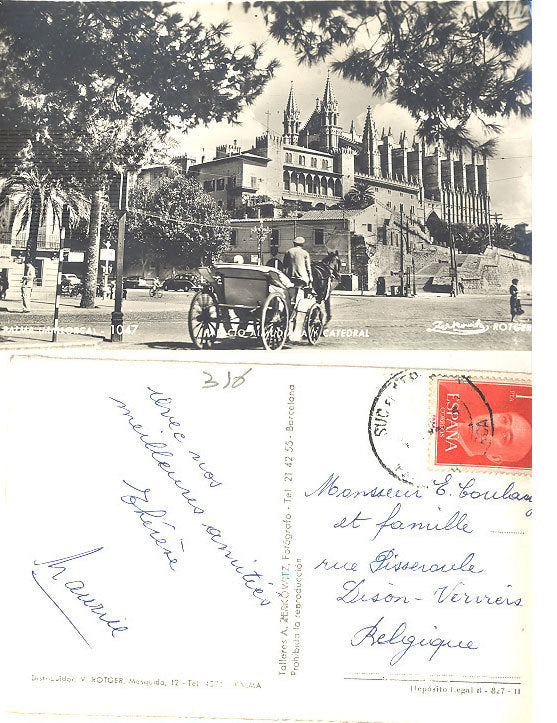 PALMA (MALLORCA) 1047
PALACIO ALMUDAINA Y CATEDRAL
Zerkowitz ROTGER
316
avec nos
meilleures amitiés
Thérèse
Maurice
Talleres A. ZERKOWITZ, Fotógrafo - Tel. 21 42 55 - Barcelona
Prohibida la reproducción
SUC
1
PTA
ESPAÑA
CORREOS
Monsieur E. Coulang
et famille
rue Pisseroule
Dison - Verviers
Belgique
Distribuidor: V. ROTGER, Mosquida, 12 - Tel. PALMA
Depósito Legal B - 827 - II